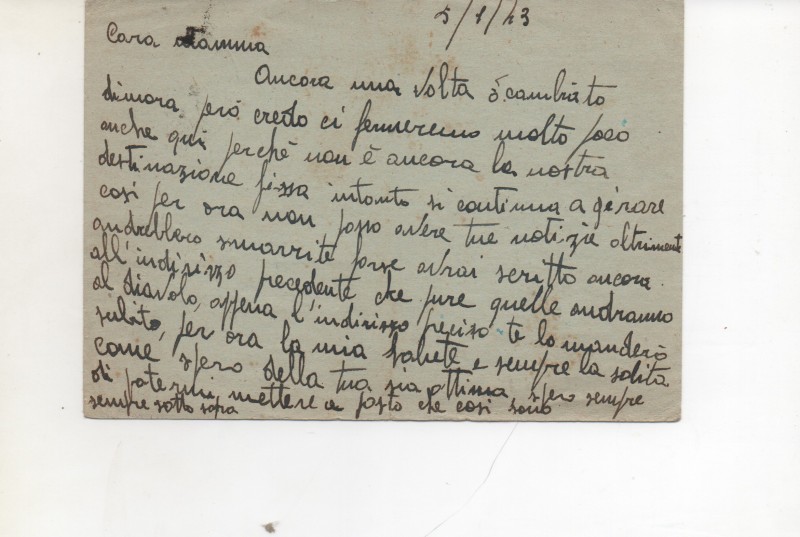 5/1/43
Cara Mamma
Ancora una volta ò cambiato
dimora però credo ci fermeremo molto poco
anche qui perchè non è ancora la nostra
destinazione fissa intanto si continua a girare
così per ora non posso avere tue notizie altrimente
andrebbero smarrite forse avrai scritto ancora
all'indirizzo precedente che pure quelle andranno
al diavolo, appena l'indirizzo preciso te lo manderò
subito, per ora la mia salute e sempre la solita
come spero della tua sia ottima spero sempre
di potermi mettere a posto che così sono
sempre sotto sopra